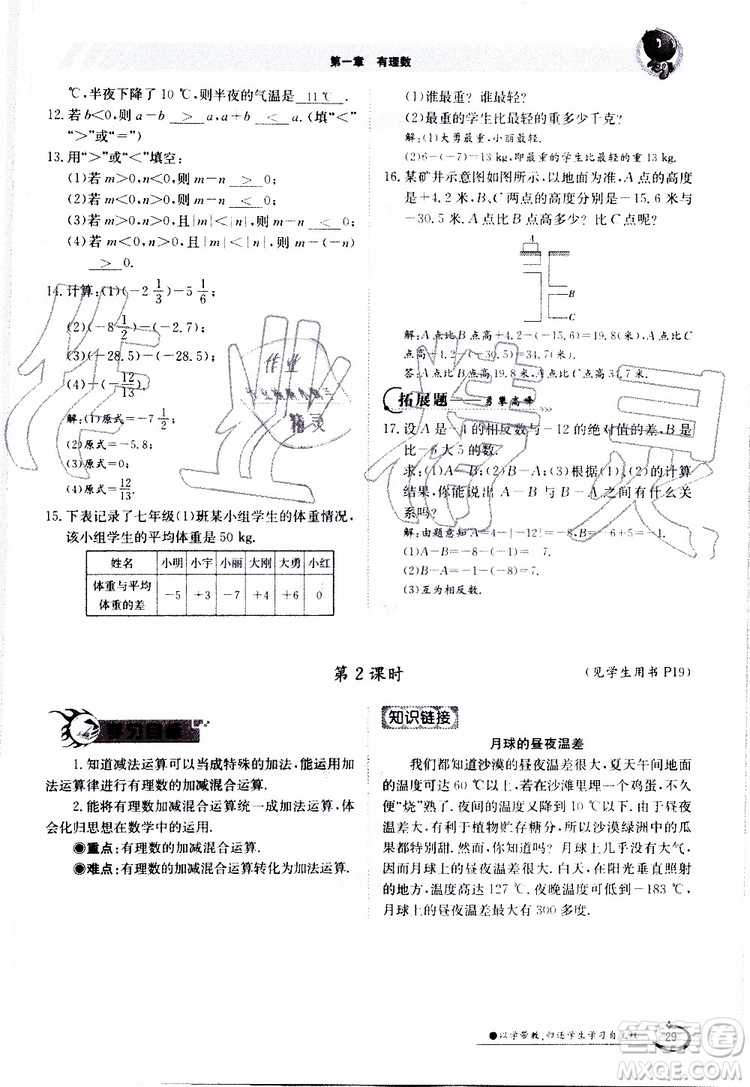 第一章　有理数
℃,半夜下降了 10 ℃,则半夜的气温是 11 ℃ .
12. 若 b<0,则 a-b > a,a+b < a. (填“<”
“>”或“=”)
13. 用“>”或“<”填空:
(1)若 m>0,n<0,则 m-n > 0;
(2)若 m<0,n>0,则 m-n < 0;
(3)若 m>0,n>0,且|m|<|n|,则 m-n
< 0;
(4)若 m<0,n<0,且|m|<|n|,则 m-n
> 0.
14. 计算:(1)(-2 1/3)-5 1/6;
(2)(-8 1/2)-(-2.7);
(3)(-28.5)-(-28.5);
(4)-(-12/13).
解:(1)原式=-7 1/2;
(2)原式=-5.8;
(3)原式=0;
(4)原式=12/13.
15. 下表记录了七年级(1)班某小组学生的体重情况,
该小组学生的平均体重是 50 kg.
姓名 小明 小宇 小丽 大刚 大勇 小红
体重与平均体重的差 -5 +3 -7 +4 +6 0
(1)谁最重?谁最轻?
(2)最重的学生比最轻的重多少千克?
解:(1)大勇最重,小丽最轻.
(2)6-(-7)=13 kg,即最重的学生比最轻的学生重13 kg.
16. 某矿井示意图如图所示,以地面为准,A 点的高度
是+4.2 米,B、C 两点的高度分别是-15.6 米与
-30.5 米. A 点比 B 点高多少? 比 C 点呢?
B
C
解:A 点比 B 点高+4.2-(-15.6)=19.8(米),
A 点比 C 点高+4.2-(-30.5)=34.7(米).
答:A 点比 B 点高 19.8 米,比 C 点高 34.7 米.
拓展题
勇攀高峰
17. 设 A 是-4 的相反数与-12 的绝对值的差,B 是
比-6 大 5 的数.
求:(1)A-B;(2)B-A;(3)根据(1)(2)的计算
结果,你能说出 A-B 与 B-A 之间有什么关
系吗?
解:由题意知 A=4-|-12|=-8,B=-6+5=-1.
(1)A-B=-8-(-1)=-7.
(2)B-A=-1-(-8)=7.
(3)互为相反数.
第 2 课时
(见学生用书 P19)
学习目标
1. 知道减法运算可以当成特殊的加法运算,能用加
法运算律进行有理数的加减混合运算.
2. 能将有理数加减混合运算统一成加法运算,体
会化归思想在数学中的运用.
●重点:有理数的加减混合运算.
●难点:有理数的加减混合运算转化为加法运算.
知识链接
月球的昼夜温差
我们都知道沙漠的昼夜温差很大,夏天午间地面
的温度约 60 ℃,若在沙滩里埋一个鸡蛋,不久
便“烧”熟了. 夜间的温度又降到 10 ℃以下. 由于昼夜
温差大,有利于植物贮存糖分,所以沙漠绿洲中的瓜
果都特别甜. 然而,你知道吗? 月球上几乎没有大气,
因而月球上的昼夜温差很大. 白天,在阳光垂直照射
的地方,温度高达 127 ℃,夜晚温度可降低到-183 ℃,
月球上的昼夜温差最大有 300 多度.
●以学带教,归还学生学习自主权
29
作业
精灵
答案圈
MXQE.COM